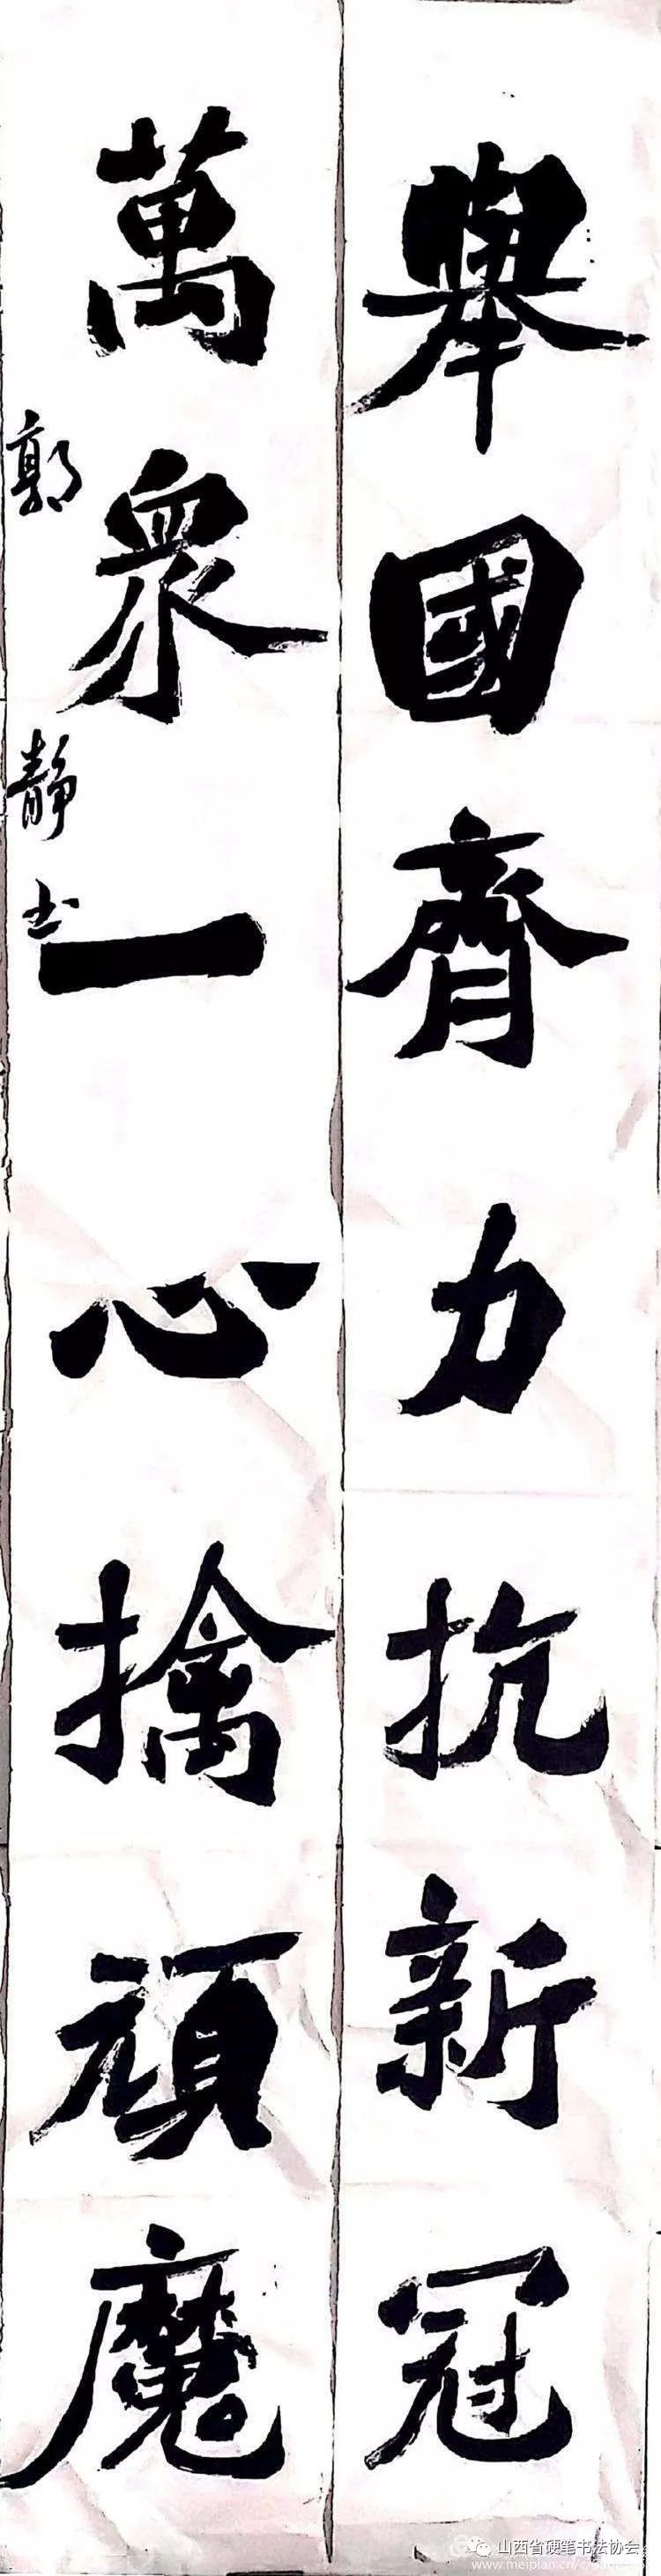 舉國齊力抗新冠
萬衆一心擒頑魔
郭靜书
山西省硬笔书法协会